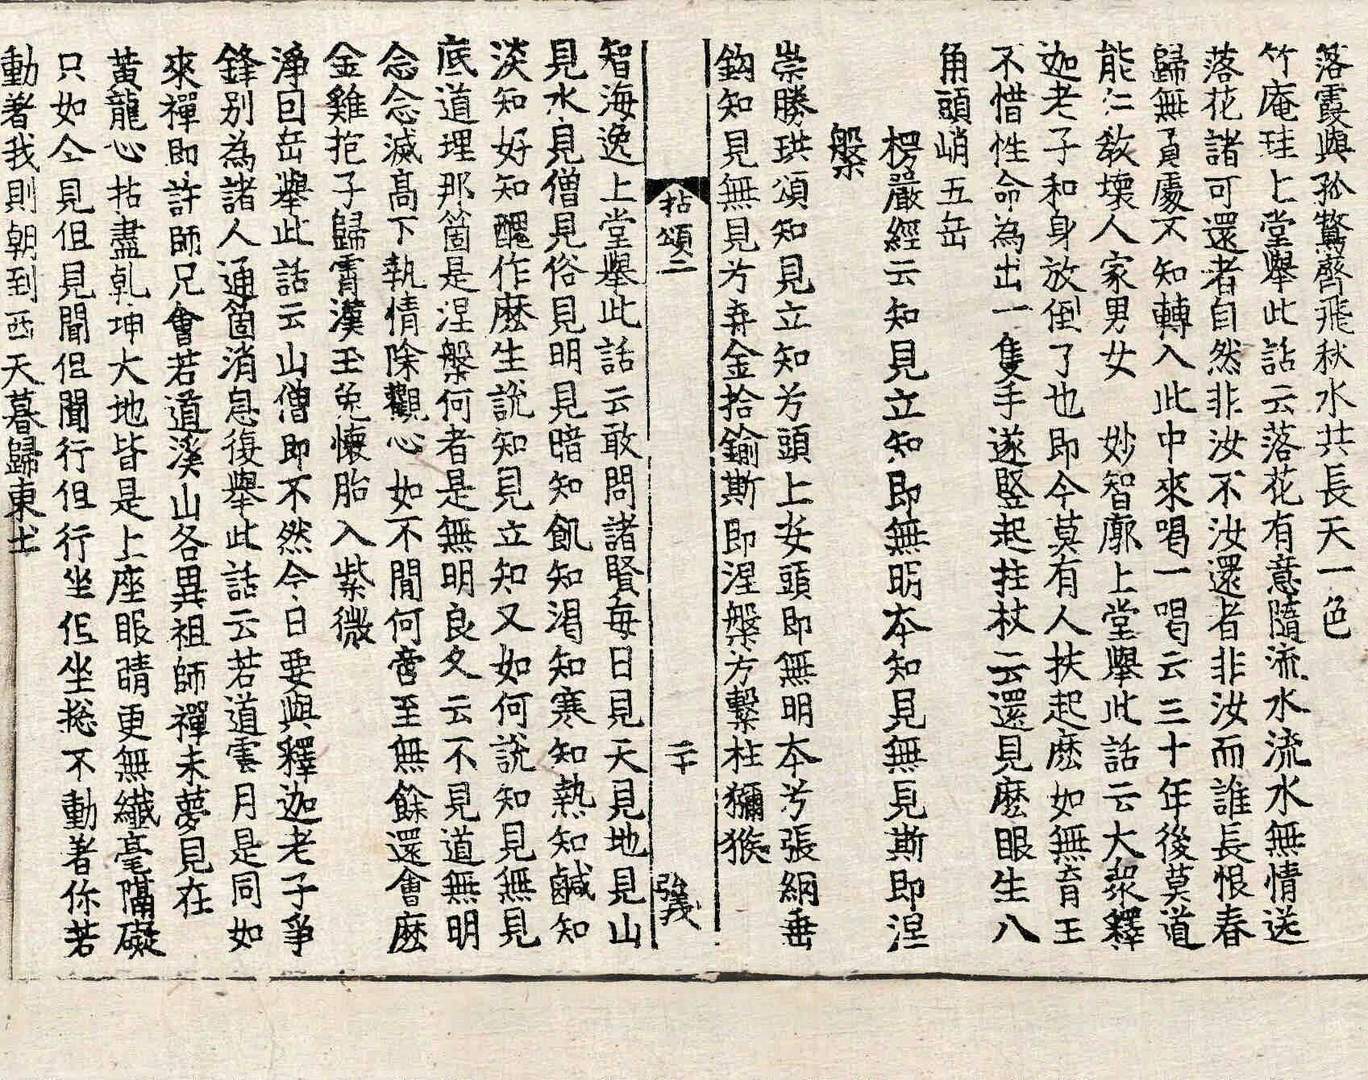 落霞與孤鶩齊飛秋水共長天一色
竹庵珪上堂舉此話云落花有意隨流水流水無情送
落花諸可還者自然非汝不汝還者非汝而誰長恨春
歸無覓處不知轉入此中來喝一喝云三十年後莫道
能仁教壞人家男女　妙智廓上堂舉此話云大衆釋
迦老子和身放倒了也即今莫有人扶起麽如無育王
不惜性命為出一隻手遂竪起拄杖云還見麽眼生八
角頭峭五岳
楞嚴經云知見立知即無明本知見無見斯即涅
槃
崇勝珙頌知見立知兮頭上安頭即無明本兮張網垂
鈎知見無見兮弃金拾鍮斯即涅槃兮繫柱獼猴
拈頌二　二十　強義
智海逸上堂舉此話云敢問諸賢每日見天見地見山
見水見僧見俗見明見暗知飢知渴知寒知熱知鹹知
淡知好知醜作麽生說知見立知又如何說知見無見
底道理那箇是涅槃何者是無明良久云不見道無明
念念滅高下執情除觀心如不間何啻至無餘還會麽
金雞抱子歸霄漢玉兔懷胎入紫微
淨因岳舉此話云山僧即不然今日要與釋迦老子爭
鋒别為諸人通箇消息復舉此話云若道雲月是同如
來禪即許師兄會若道溪山各異祖師禪未夢見在
黃龍心拈盡乹坤大地皆是上座眼睛更無纖毫隔礙
只如今見但見聞但聞行但行坐但坐揔不動著你若
動著我則朝到西天暮歸東土